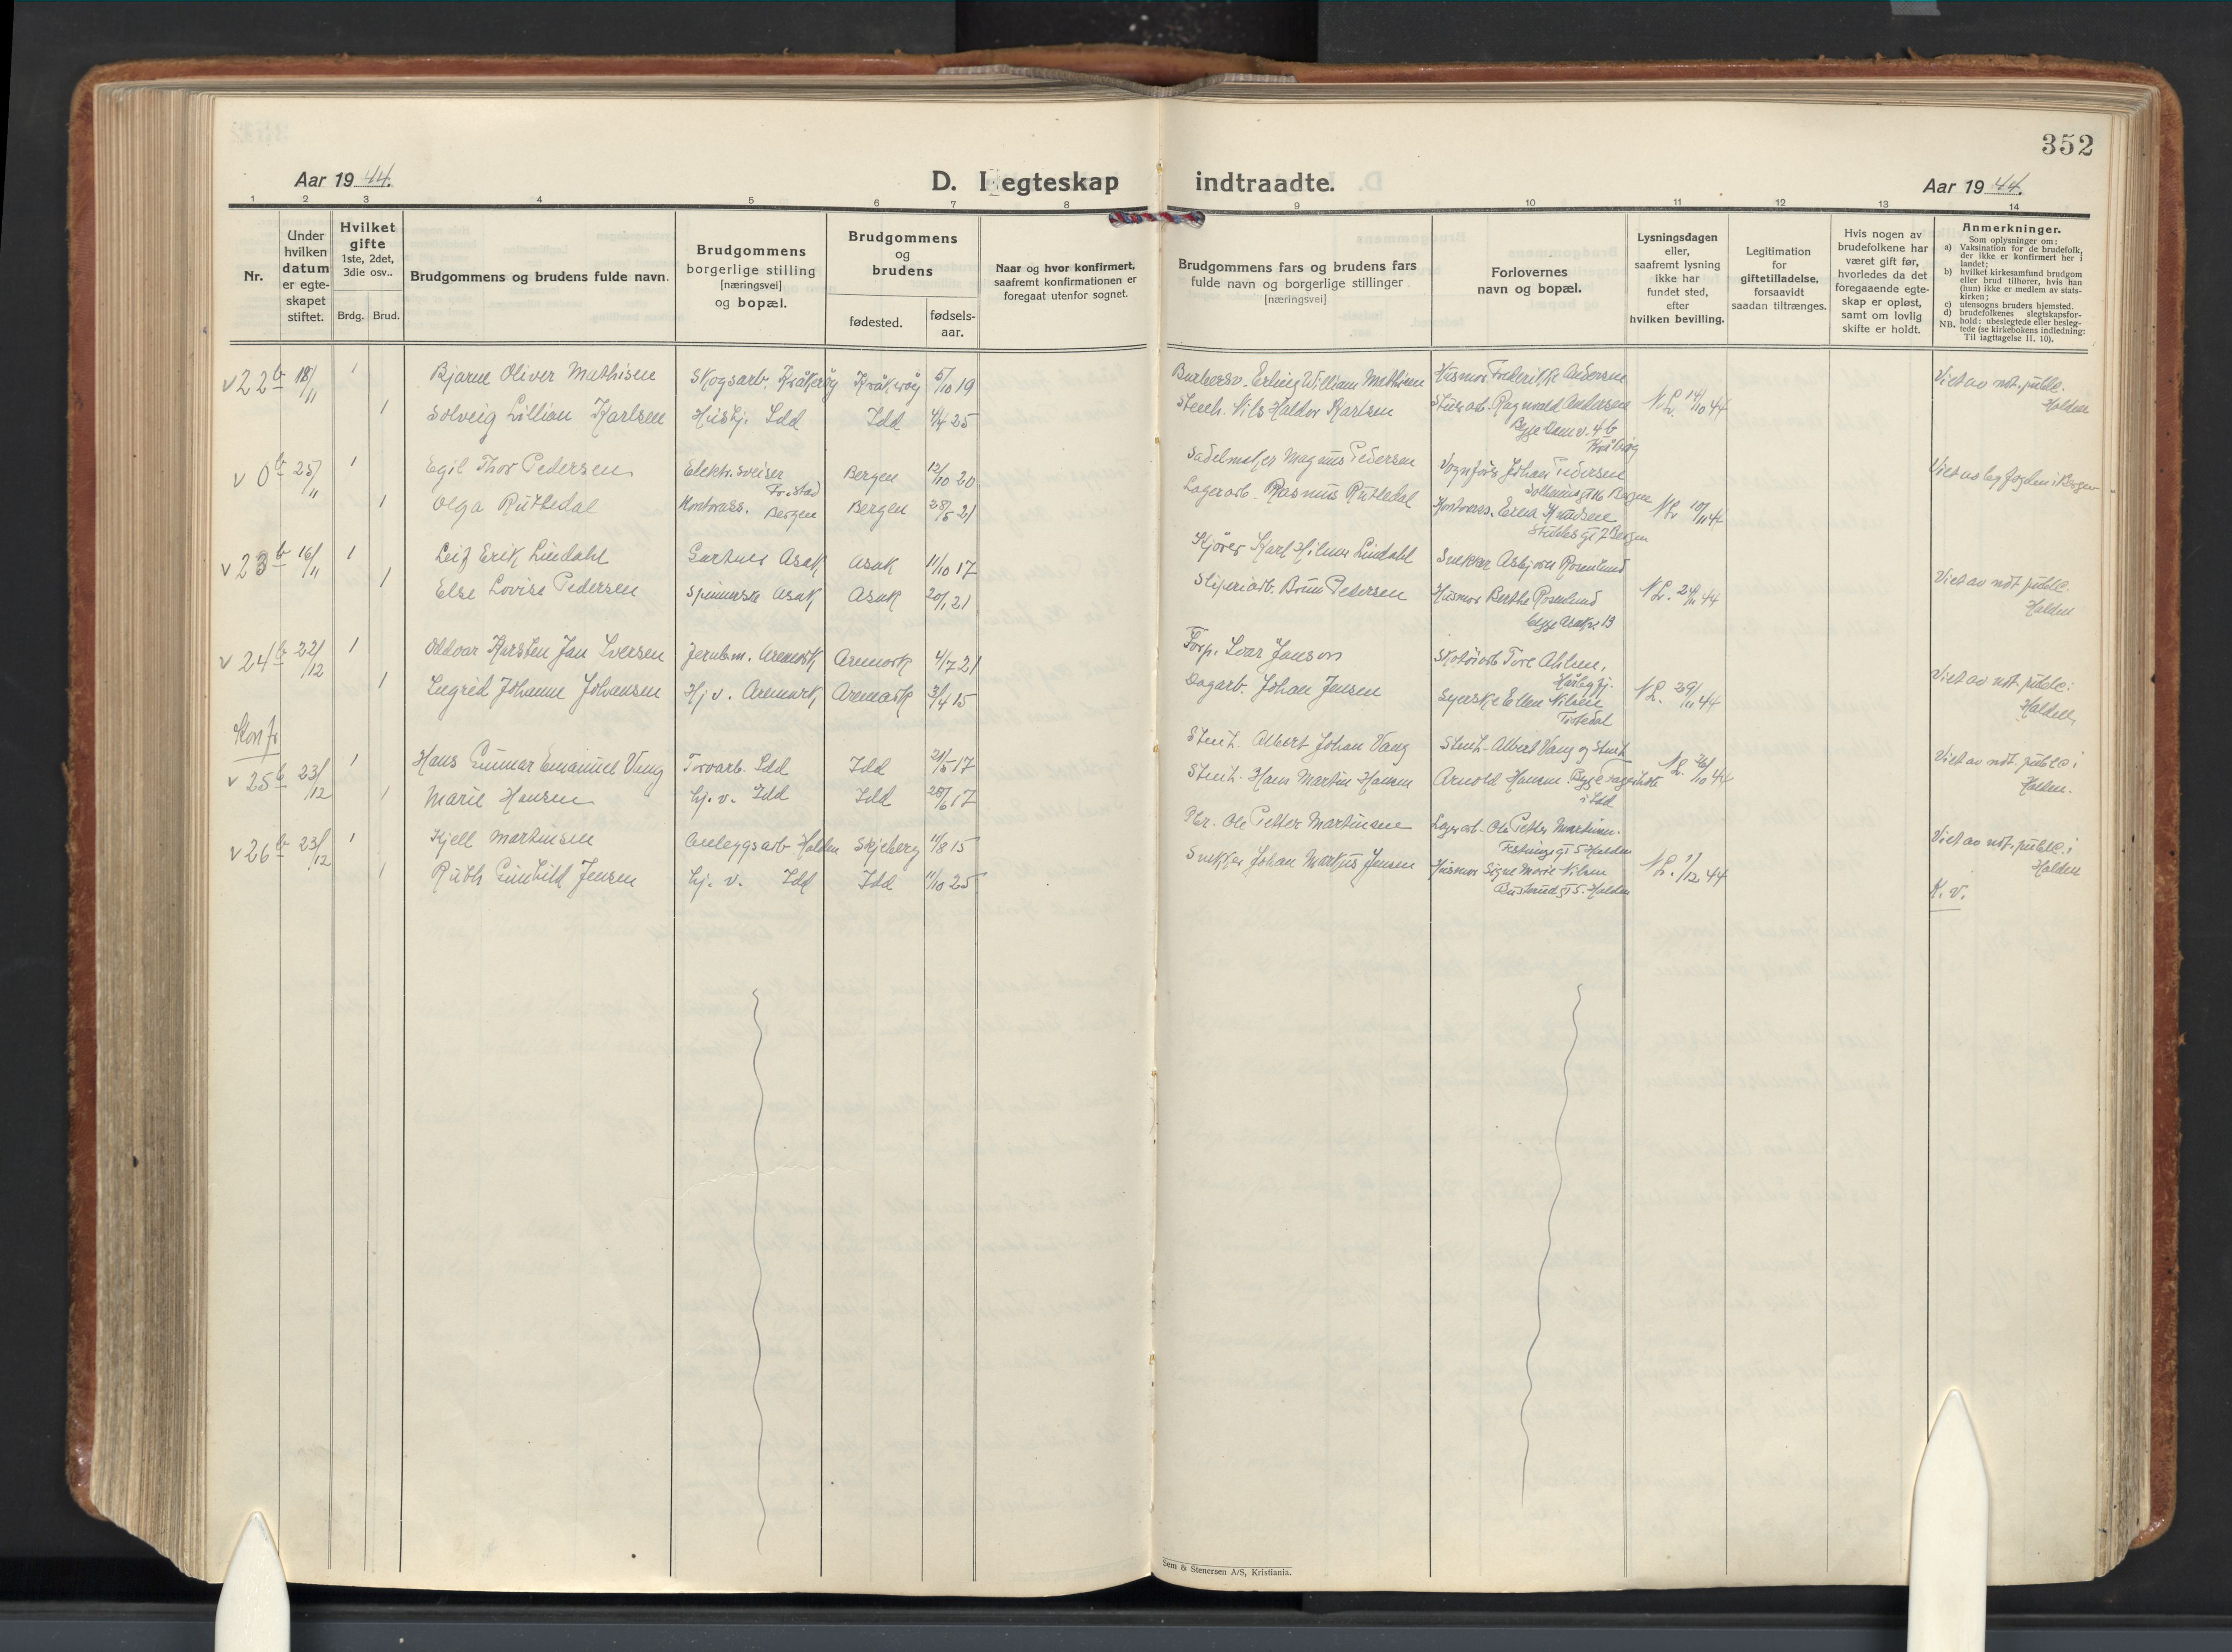 352
Aar 1944.
D. I egteskap indtraadte.
Aar 1944.
1 2 3 4 5 6 7 8 9 10 11 12 13 14
Nr.
Under hvilken datum er egte-skapet stiftet.
Hvilket gifte 1ste, 2det, 3die osv..
Brdg. Brud.
Brudgommens og brudens fulde navn.
Brudgommens borgerlige stilling [næringsvei] og bopæl.
Brudgommens og brudens
fødested.
fødsels-aar.
Naar og hvor konfirmert, saafremt konfirmationen er foregaat utenfor sognet.
Brudgommens fars og brudens fars fulde navn og borgerlige stillinger [næringsvei]
Forlovernes navn og bopæl.
Lysningsdagen eller, saafremt lysning ikke har fundet sted, efter hvilken bevilling.
Legitimation for giftetilladelse, forsaavidt saadan tiltrænges.
Hvis nogen av brudefolkene har været gift før, hvorledes da det foregaaende egte-skap er opløst, samt om lovlig skifte er holdt.
Anmerkninger.
Som oplysninger om:
a) Vaksination for de brudefolk, der ikke er konfirmert her i landet;
b) hvilket kirkesamfund brudgom eller brud tilhører, hvis han (hun) ikke er medlem av stats-kirken;
c) utensogns bruders hjemsted.
d) brudefolkenes slegtskapsfor-hold: ubeslegtede eller besleg-tede (se kirkebokens indledning: Til iagttagelse II. 10).
NB.
v 22 b 18/11 1 Bjarne Oliver Mathisen Skogsarb. Kråkerøy Kråkerøy 5/10 19 Erling William Mathisen Husmor Fredrikke Andersen N.L. 14/10 44 Viet av not. public. Halden
1 Solveig Lillian Karlsen Hushj. Idd Idd 4/4 25 Stenh. Nils Haldor Karlsen Ragnvald Andersen
Begge 4b
Kråkerøy
v 0 b 25/11 1 Egil Thor Pedersen Elektr. sveiser Fr.stad Bergen 12/10 20 Sadelmaker Magnus Pedersen Vognfører Johan Pedersen Viet av byfogden i Bergen
Bergen
1 Olga Rutledal Kontorass. Bergen Bergen 28/5 21 Lagerarb. Rasmus Rutledal Kontorass. Erna Knudsen N.L. 10/11 44
Bergen
v 23 b 16/11 1 Leif Erik Lindahl Gartner Asak Asak 11/10 17 Kjører Karl Hilmer Lindahl Snekker Asbjørn Rosenlund
1 Else Lovise Pedersen Spinnerske Asak Asak 20/1 21 Sliperiarb. Brun Pedersen Husmor Berthe Rosenlund N.L. 24/11 44 Viet av not. public. Halden
Begge 13
v 24 b 22/12 1 Oddvar Karsten Jan Iversen Jernb.m. Aremark Aremark 4/7 21 Forp. Ivar Jonson Skotøiarb Tore
1 Ingrid Johanne Johansen Hj v. Aremark Aremark 3/4 15 Dagarb. Johan Jensen Syerske Ellen Nilsen N.L. 29/11 44 Viet av not. public i Halden
Tistedal
Konfr
v 25 b 23/12 1 Hans Gunnar Emanuel Vang Torvarb. Idd Idd 21/5 17 Stenh. Albert Johan Vang Stenh. Albert Vang og Stenh N.L. 26/10 44 Viet av not. public i Halden.
1 Marie Hansen hj. v. Idd Idd 28/6 17 Stenh. Hans Martin Hansen Arnold Hansen Begge
i Idd
v 26 b 23/12 1 Kjell Martinsen Anleggsarb Halden Skjeberg 11/8 15 Pbr. Ole Petter Martinsen Lagerarb. Ole Petter Martinsen. Viet av not. public i Halden
5 Halden
1 Ruth Gunhild Jensen hj. v. Idd Idd 11/10 25 Snekker Johan Markus Jensen Husmor Signe Marie Nilsen N.L. 1/12 44
5. Halden
K. v.
Sem & Stenersen A/S, Kristiania.